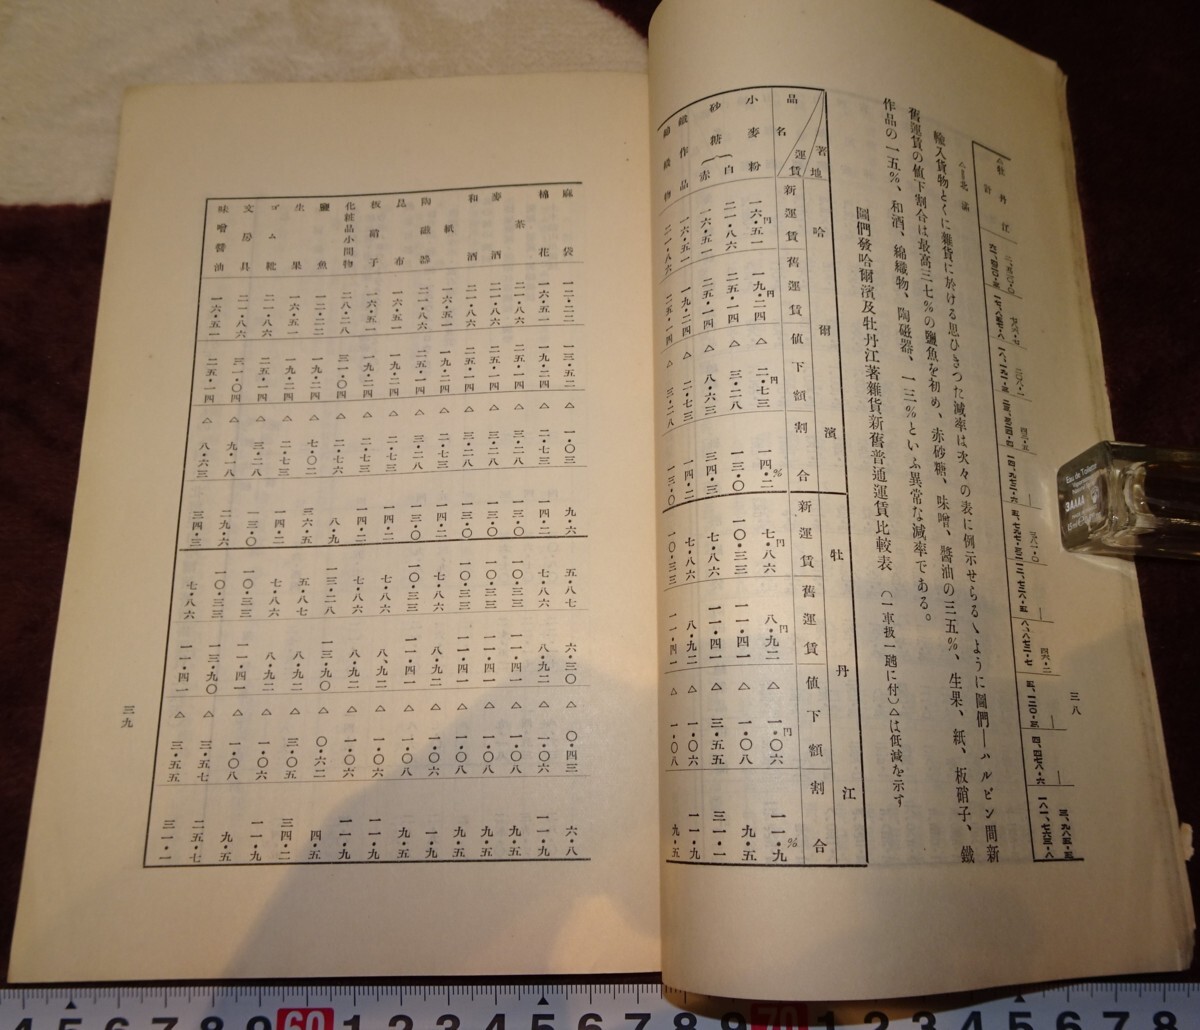 三八
△牡丹江計
△＝北満
輸入貨物とくに雜貨に於ける思ひきつた減率は次々の表に例示せらるゝように圖們―ハルビン間新
舊運賃の値下割合は最高三七%の鹽魚を初め、赤砂糖、味噌、醬油の三五%、生果、紙、板硝子、鐵
作品の一五%、和酒、綿織物、陶磁器、一三%といふ異常な減率である。
圖們發哈爾濱及牡丹江著雜貨新舊普通運賃比較表 (一車扱一瓲に付)△は低減を示す
著地 運賃 品名 哈爾濱 牡丹江
新運賃 舊運賃 値下額 割合 新運賃 舊運賃 値下額 割合
小麥粉 一六・五一円 一九・二四円 △ 二・七三円 一四・二% 七・八六円 八・九二円 △ 一・〇六円 一一・九%
砂糖 白 二一・八六 二五・一四 △ 三・二八 一三・〇 一〇・三三 一一・四一 △ 一・〇八 九・五
赤 一六・五一 二五・一四 △ 八・六三 三四・三 七・八六 一一・四一 △ 三・五五 三一・一
鐵作品 一六・五一 一九・二四 △ 二・七三 一四・二 七・八六 八・九二 △ 一・〇六 一一・九
綿織物 二一・八六 二五・一四 △ 三・二八 一三・〇 一〇・三三 一一・四一 △ 一・〇八 九・五
麻袋 一二・二二 一三・五二 △ 一・〇三 九・六 五・八七 六・三〇 △ 〇・四三 六・八
棉花 一六・五一 一九・二四 △ 二・七三 一四・二 七・八六 八・九二 △ 一・〇六 一一・九
茶 二一・八六 二五・一四 △ 三・二八 一三・〇 一〇・三三 一一・四一 △ 一・〇八 九・五
麥酒 二一・八六 二五・一四 △ 三・二八 一三・〇 一〇・三三 一一・四一 △ 一・〇八 九・五
和酒 二一・八六 二五・一四 △ 三・二八 一三・〇 一〇・三三 一一・四一 △ 一・〇八 九・五
紙 一六・五一 一九・二四 △ 二・七三 一四・二 七・八六 八・九二 △ 一・〇六 一一・九
陶磁器 二一・八六 二五・一四 △ 三・二八 一三・〇 一〇・三三 一一・四一 △ 一・〇八 九・五
昆布 一六・五一 一九・二四 △ 二・七三 一四・二 七・八六 八・九二 △ 一・〇六 一一・九
板硝子 一六・五一 一九・二四 △ 二・七三 一四・二 七・八六 八・九二 △ 一・〇六 一一・九
化粧品小間物 二八・二八 三一・〇四 △ 二・七六 八・九 一三・二八 一三・九〇 △ 〇・六二 四・五
鹽魚 △ 七・〇二 三六・五 五・八七 八・九二 △ 三・〇五 三四・二
生果 一六・五一 一九・二四 △ 二・七三 一四・二 七・八六 八・九二 △ 一・〇六 一一・九
ゴム靴 二一・八六 二五・一四 △ 三・二八 一三・〇 一〇・三三 一一・四一 △ 一・〇八 九・五
文房具 二一・八六 三一・〇四 △ 九・一八 二九・六 一〇・三三 一三・九〇 △ 三・五七 二五・七
味噌醬油 一六・五一 二五・一四 △ 八・六三 三四・三 七・八六 一一・四一 △ 三・五五 三一・一
三九
Eau de Toilette
4 5 6 7 8 9 60 1 2 3 4 5 6 7 8 9 70 1 2 3 4 5 6 7 8